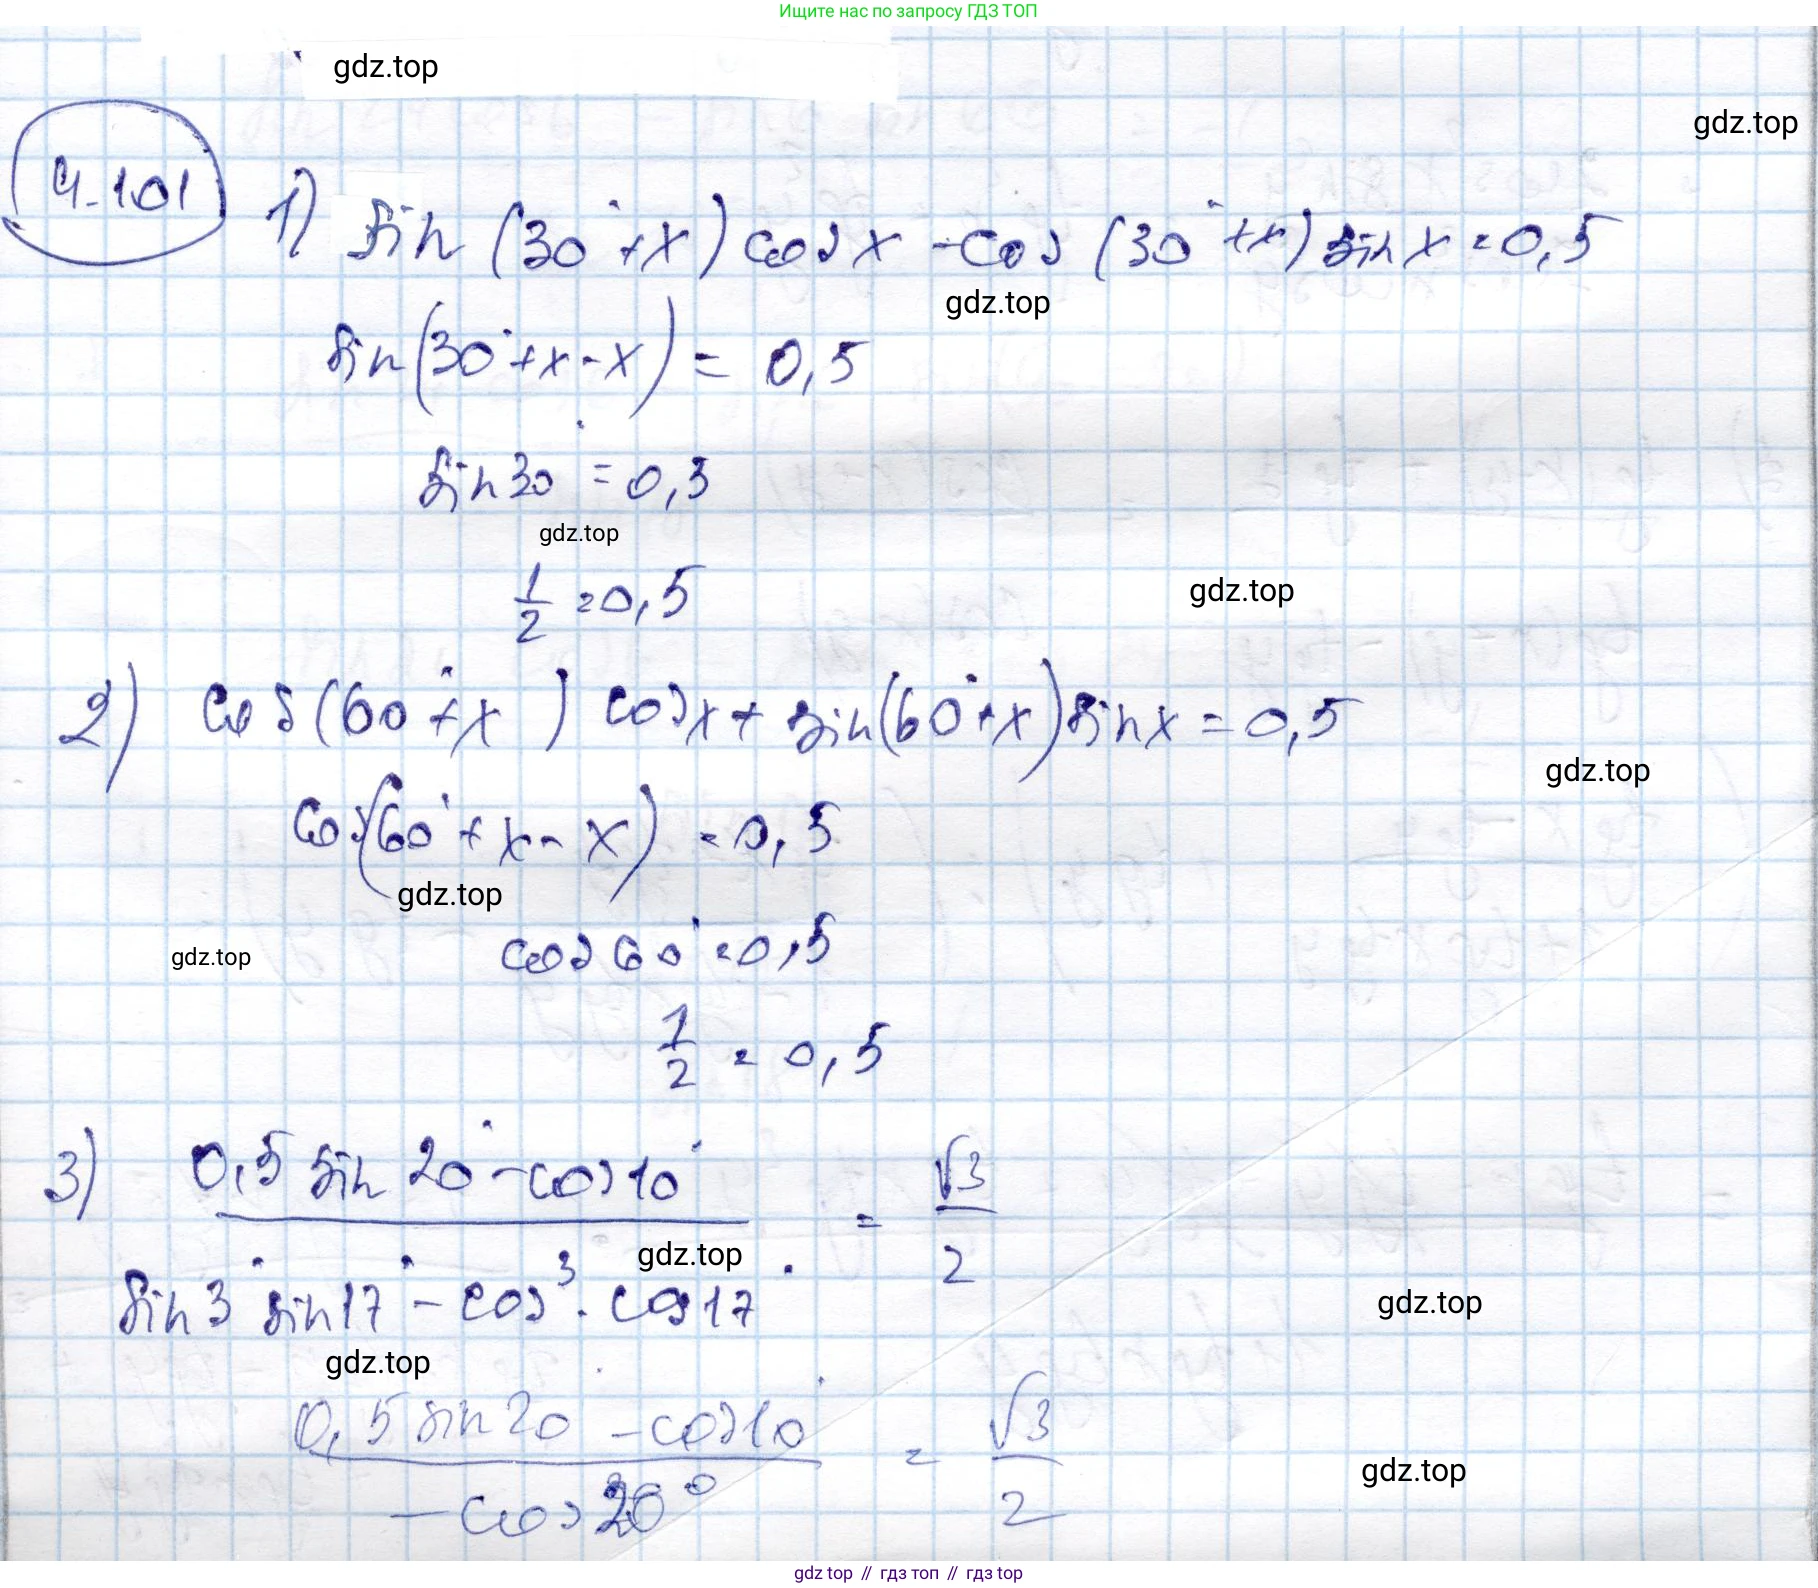 Ищите нас по запросу ГДЗ ТОП
gdz.top
gdz.top
4.101 1) sin (30° + x) cos x - cos (30° + x) sin x = 0,5
gdz.top
sin(30° + x - x) = 0,5
sin 30° = 0,5
gdz.top
1/2 = 0,5
gdz.top
2) cos(60° + x) cos x + sin(60° + x) sin x = 0,5
gdz.top
cos(60° + x - x) = 0,5
gdz.top
cos 60° = 0,5
gdz.top
1/2 = 0,5
3) 0,5 sin 20° - cos 10° = √3
gdz.top 2
sin 3° sin 17° - cos 3 · cos 17°
gdz.top
gdz.top
0,5 sin 20° - cos 10° = √3
gdz.top
- cos 20° 2
gdz top // гдз топ // гдз top